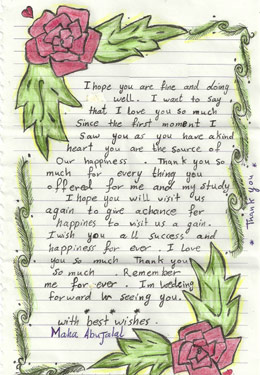 I hope you are fine and doing
well. I want to say
that I love you so much
Since the first moment I
Saw you as you have a kind
heart you are the source of
Our happiness. Thank you so
much for every thing you
offered for me and my study
I hope you will visit us
again to give achance for
happines to visit us a gain.
I wish you all success and
happiness for ever. I love
you so much Thank you
so much. Remember
me for ever. I'm looking
forward to seeing you.
with best wishes.
Maha Abujalal
* Thank you *